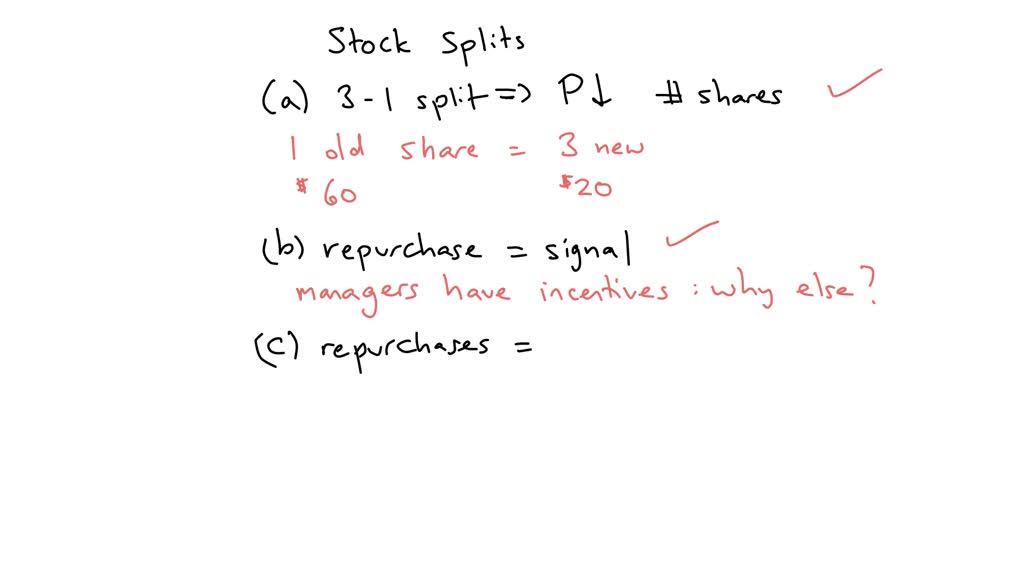 Stock Splits
(a) 3-1 split => P↓ # shares ✓
1 old share = 3 new
$60 $20
(b) repurchase = signal ✓
managers have incentives : why else?
(c) repurchases =